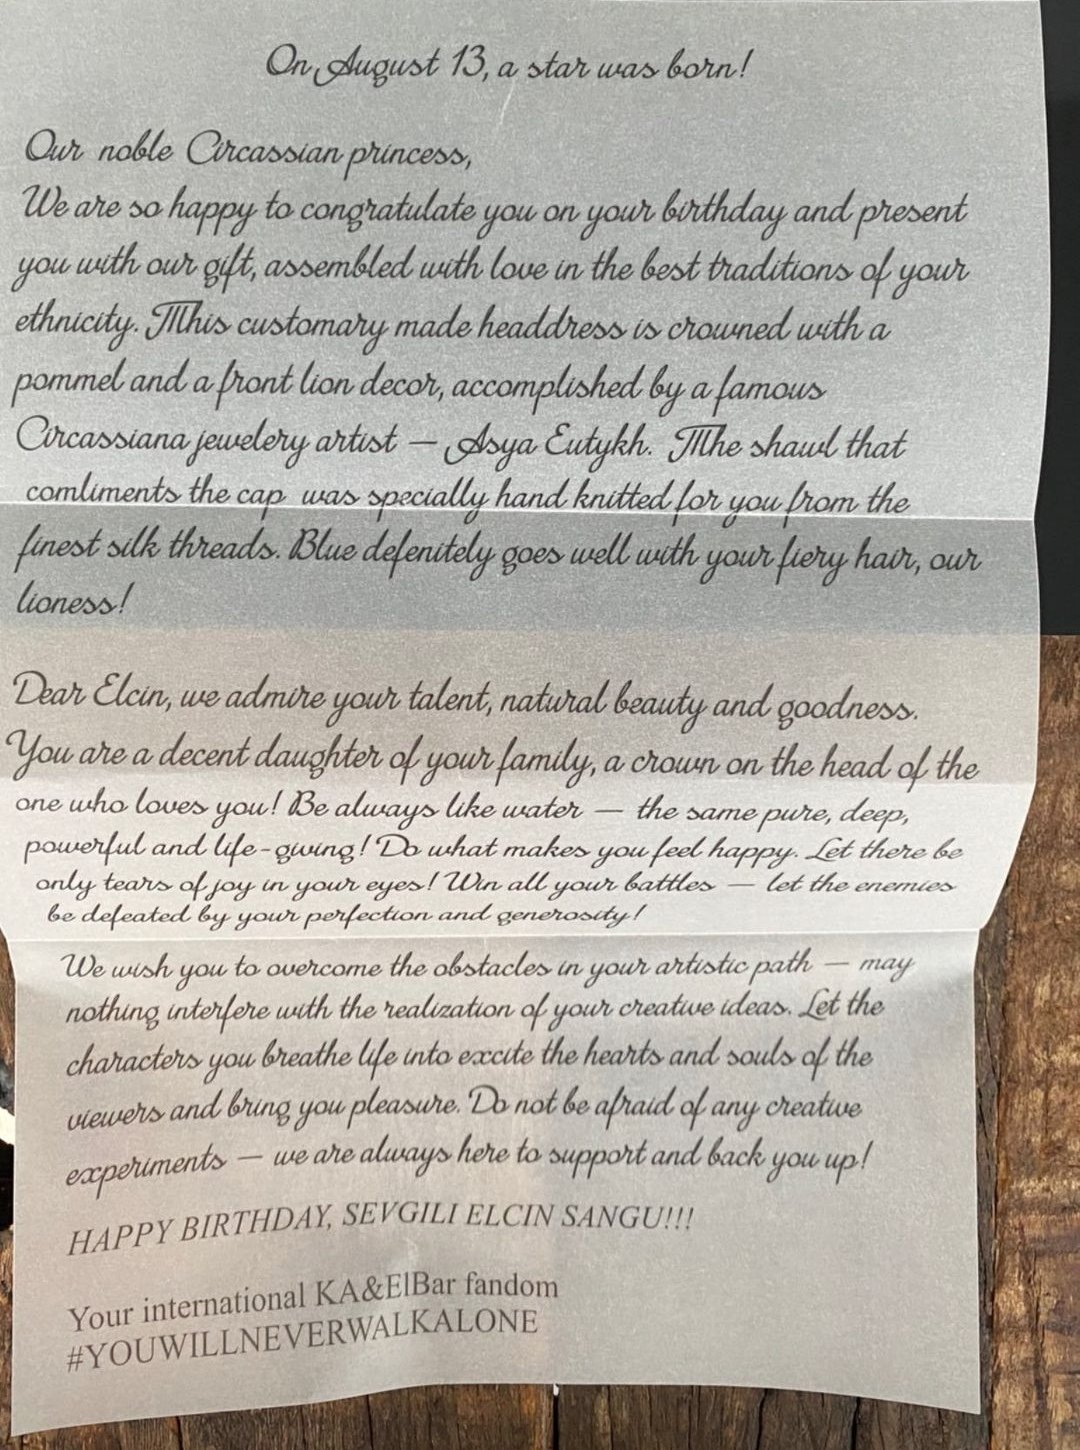 On August 13, a star was born!
Our noble Circassian princess,
We are so happy to congratulate you on your birthday and present
you with our gift, assembled with love in the best traditions of your
ethnicity. This customary made headdress is crowned with a
pommel and a front lion decor, accomplished by a famous
Circassiana jewelery artist — Asya Eutykh. The shawl that
comliments the cap was specially hand knitted for you from the
finest silk threads. Blue defenitely goes well with your fiery hair, our
lioness!
Dear Elcin, we admire your talent, natural beauty and goodness.
You are a decent daughter of your family, a crown on the head of the
one who loves you! Be always like water — the same pure, deep,
powerful and life-giving! Do what makes you feel happy. Let there be
only tears of joy in your eyes! Win all your battles — let the enemies
be defeated by your perfection and generosity!
We wish you to overcome the obstacles in your artistic path — may
nothing interfere with the realization of your creative ideas. Let the
characters you breathe life into excite the hearts and souls of the
viewers and bring you pleasure. Do not be afraid of any creative
experiments — we are always here to support and back you up!
HAPPY BIRTHDAY, SEVGILI ELCIN SANGU!!!
Your international KA&ElBar fandom
#YOUWILLNEVERWALKALONE